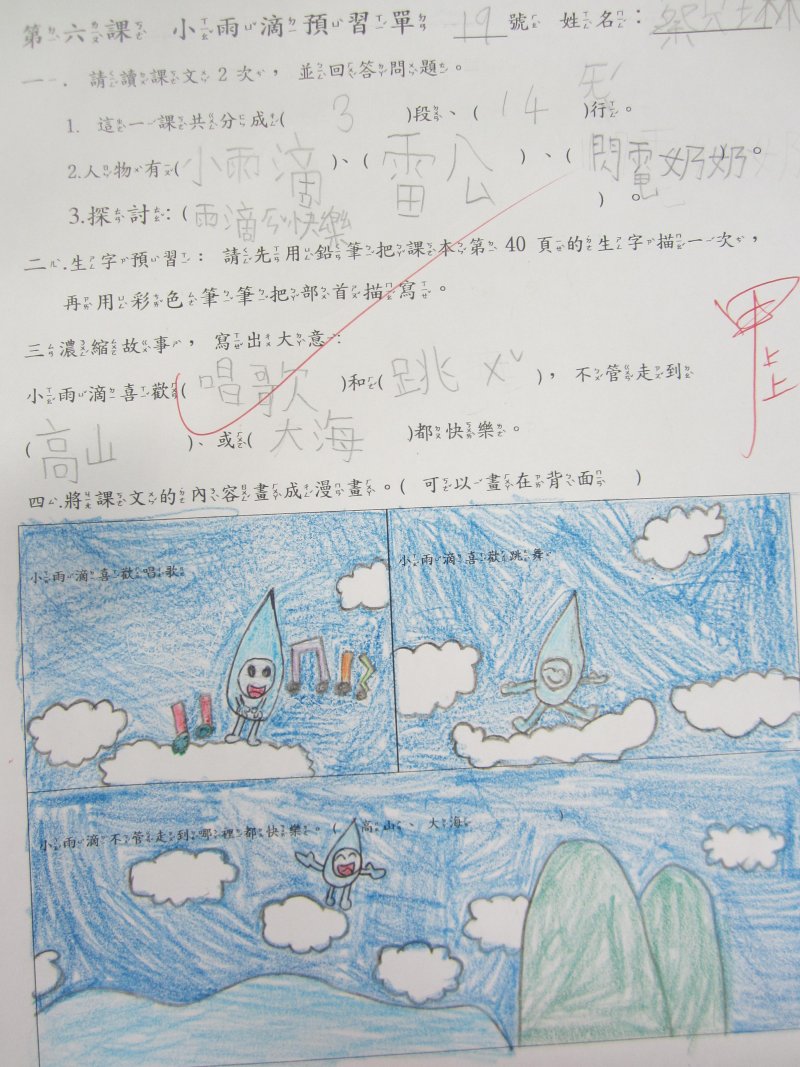 第六課 小雨滴預習單 19 號 姓名：
一. 請讀課文2次，並回答問題。
1. 這一課共分成( 3 )段、( 14 )行。
2.人物有( 小雨滴 )、( 雷公 )、( 閃電奶奶 )。
3.探討：( 雨滴ㄉ快樂 )。
二.生字預習：請先用鉛筆把課本第40頁的生字描一次，
再用彩色筆筆把部首描寫。
三濃縮故事，寫出大意：
小雨滴喜歡( 唱歌 )和( 跳ㄨˇ )，不管走到
( 高山 )、或( 大海 )都快樂。
甲上
四.將課文的內容畫成漫畫。( 可以畫在背面 )
小雨滴喜歡唱歌
小雨滴喜歡跳舞
小雨滴不管走到哪裡都快樂。( 高山、大海 )